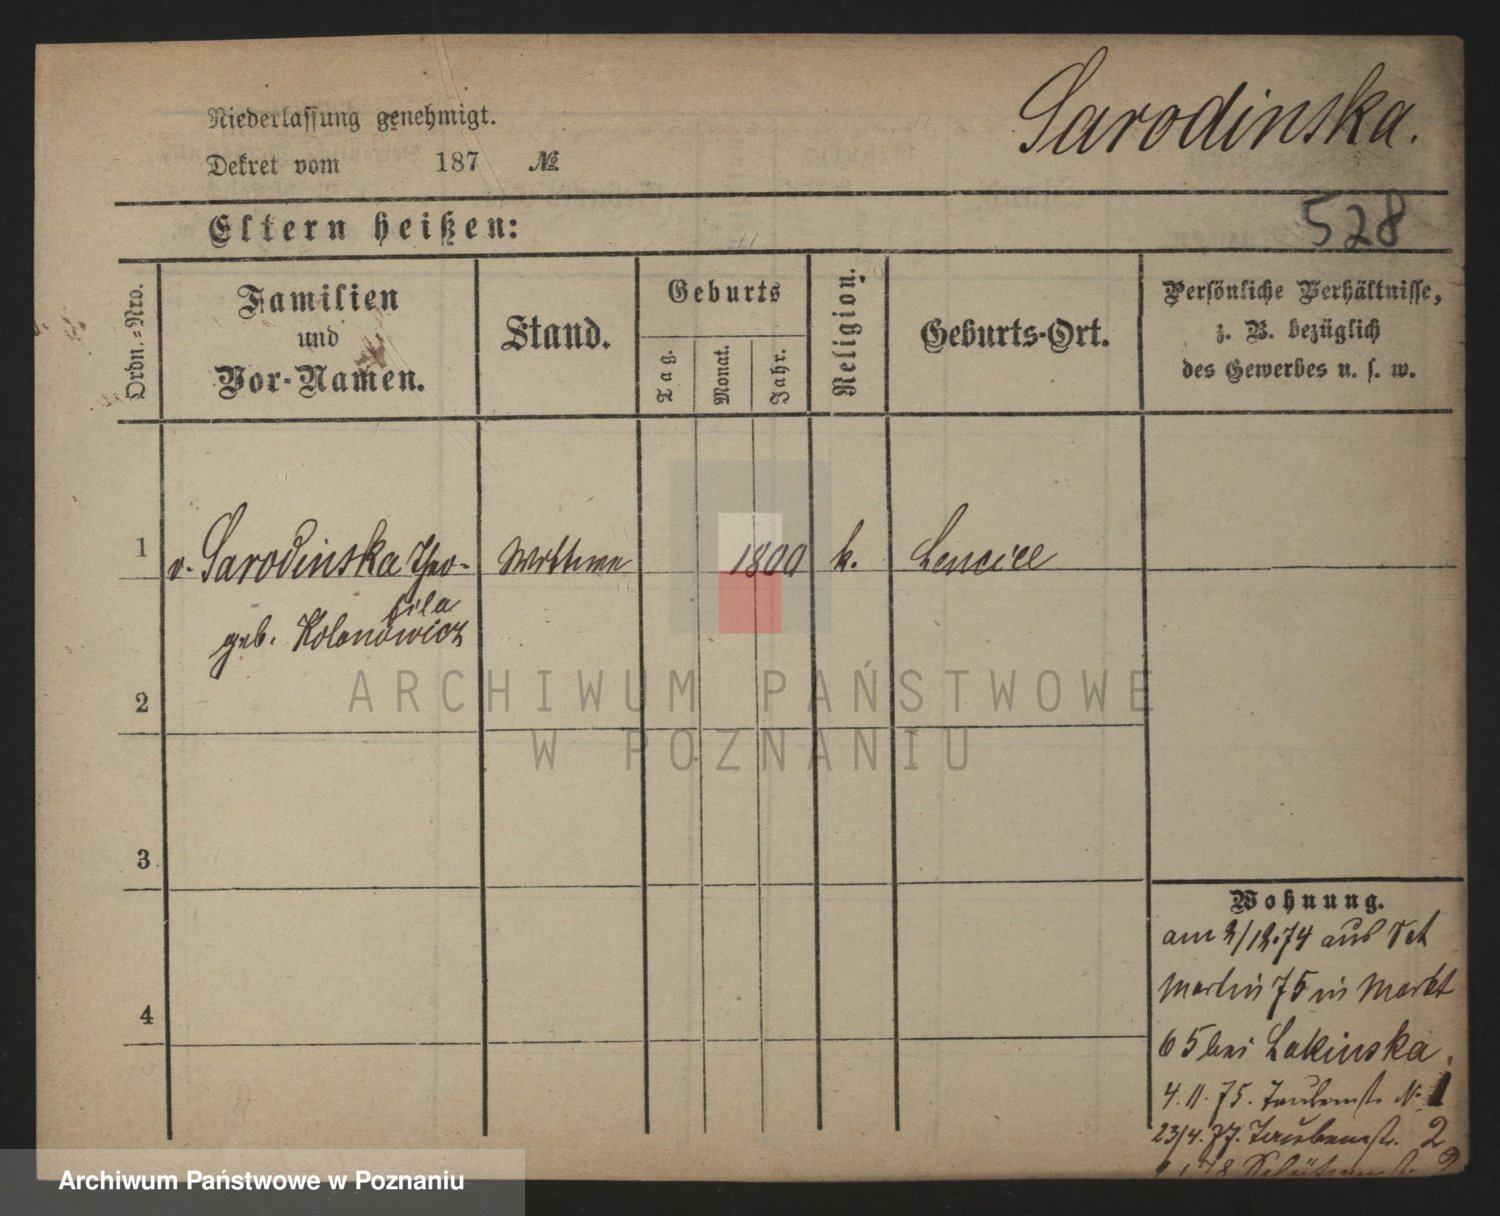 Niederlassung genehmigt.
Sarodinska.
Dekret vom 187 №
Eltern heißen:
528
Ordn.-Nro.
Familien
und
Vor-Namen.
Stand.
Geburts
Tag.
Monat.
Jahr.
Religion.
Geburts-Ort.
Persönliche Verhältnisse,
z. B. bezüglich
des Gewerbes u. s. w.
1 v. Sarodinska Theo- Wittwe 1800 k.
fila
geb. Kolanowicz
2
3
4
Wohnung.
am 2/12.74 aus Sct
Martin 75 in Markt
65 bei Lakinska.
4.11.75. Taubenstr. N. 1
23/4.77. Taubenstr. 2
78 Schützenstr.
ARCHIWUM PAŃSTWOWE
W POZNANIU
Archiwum Państwowe w Poznaniu